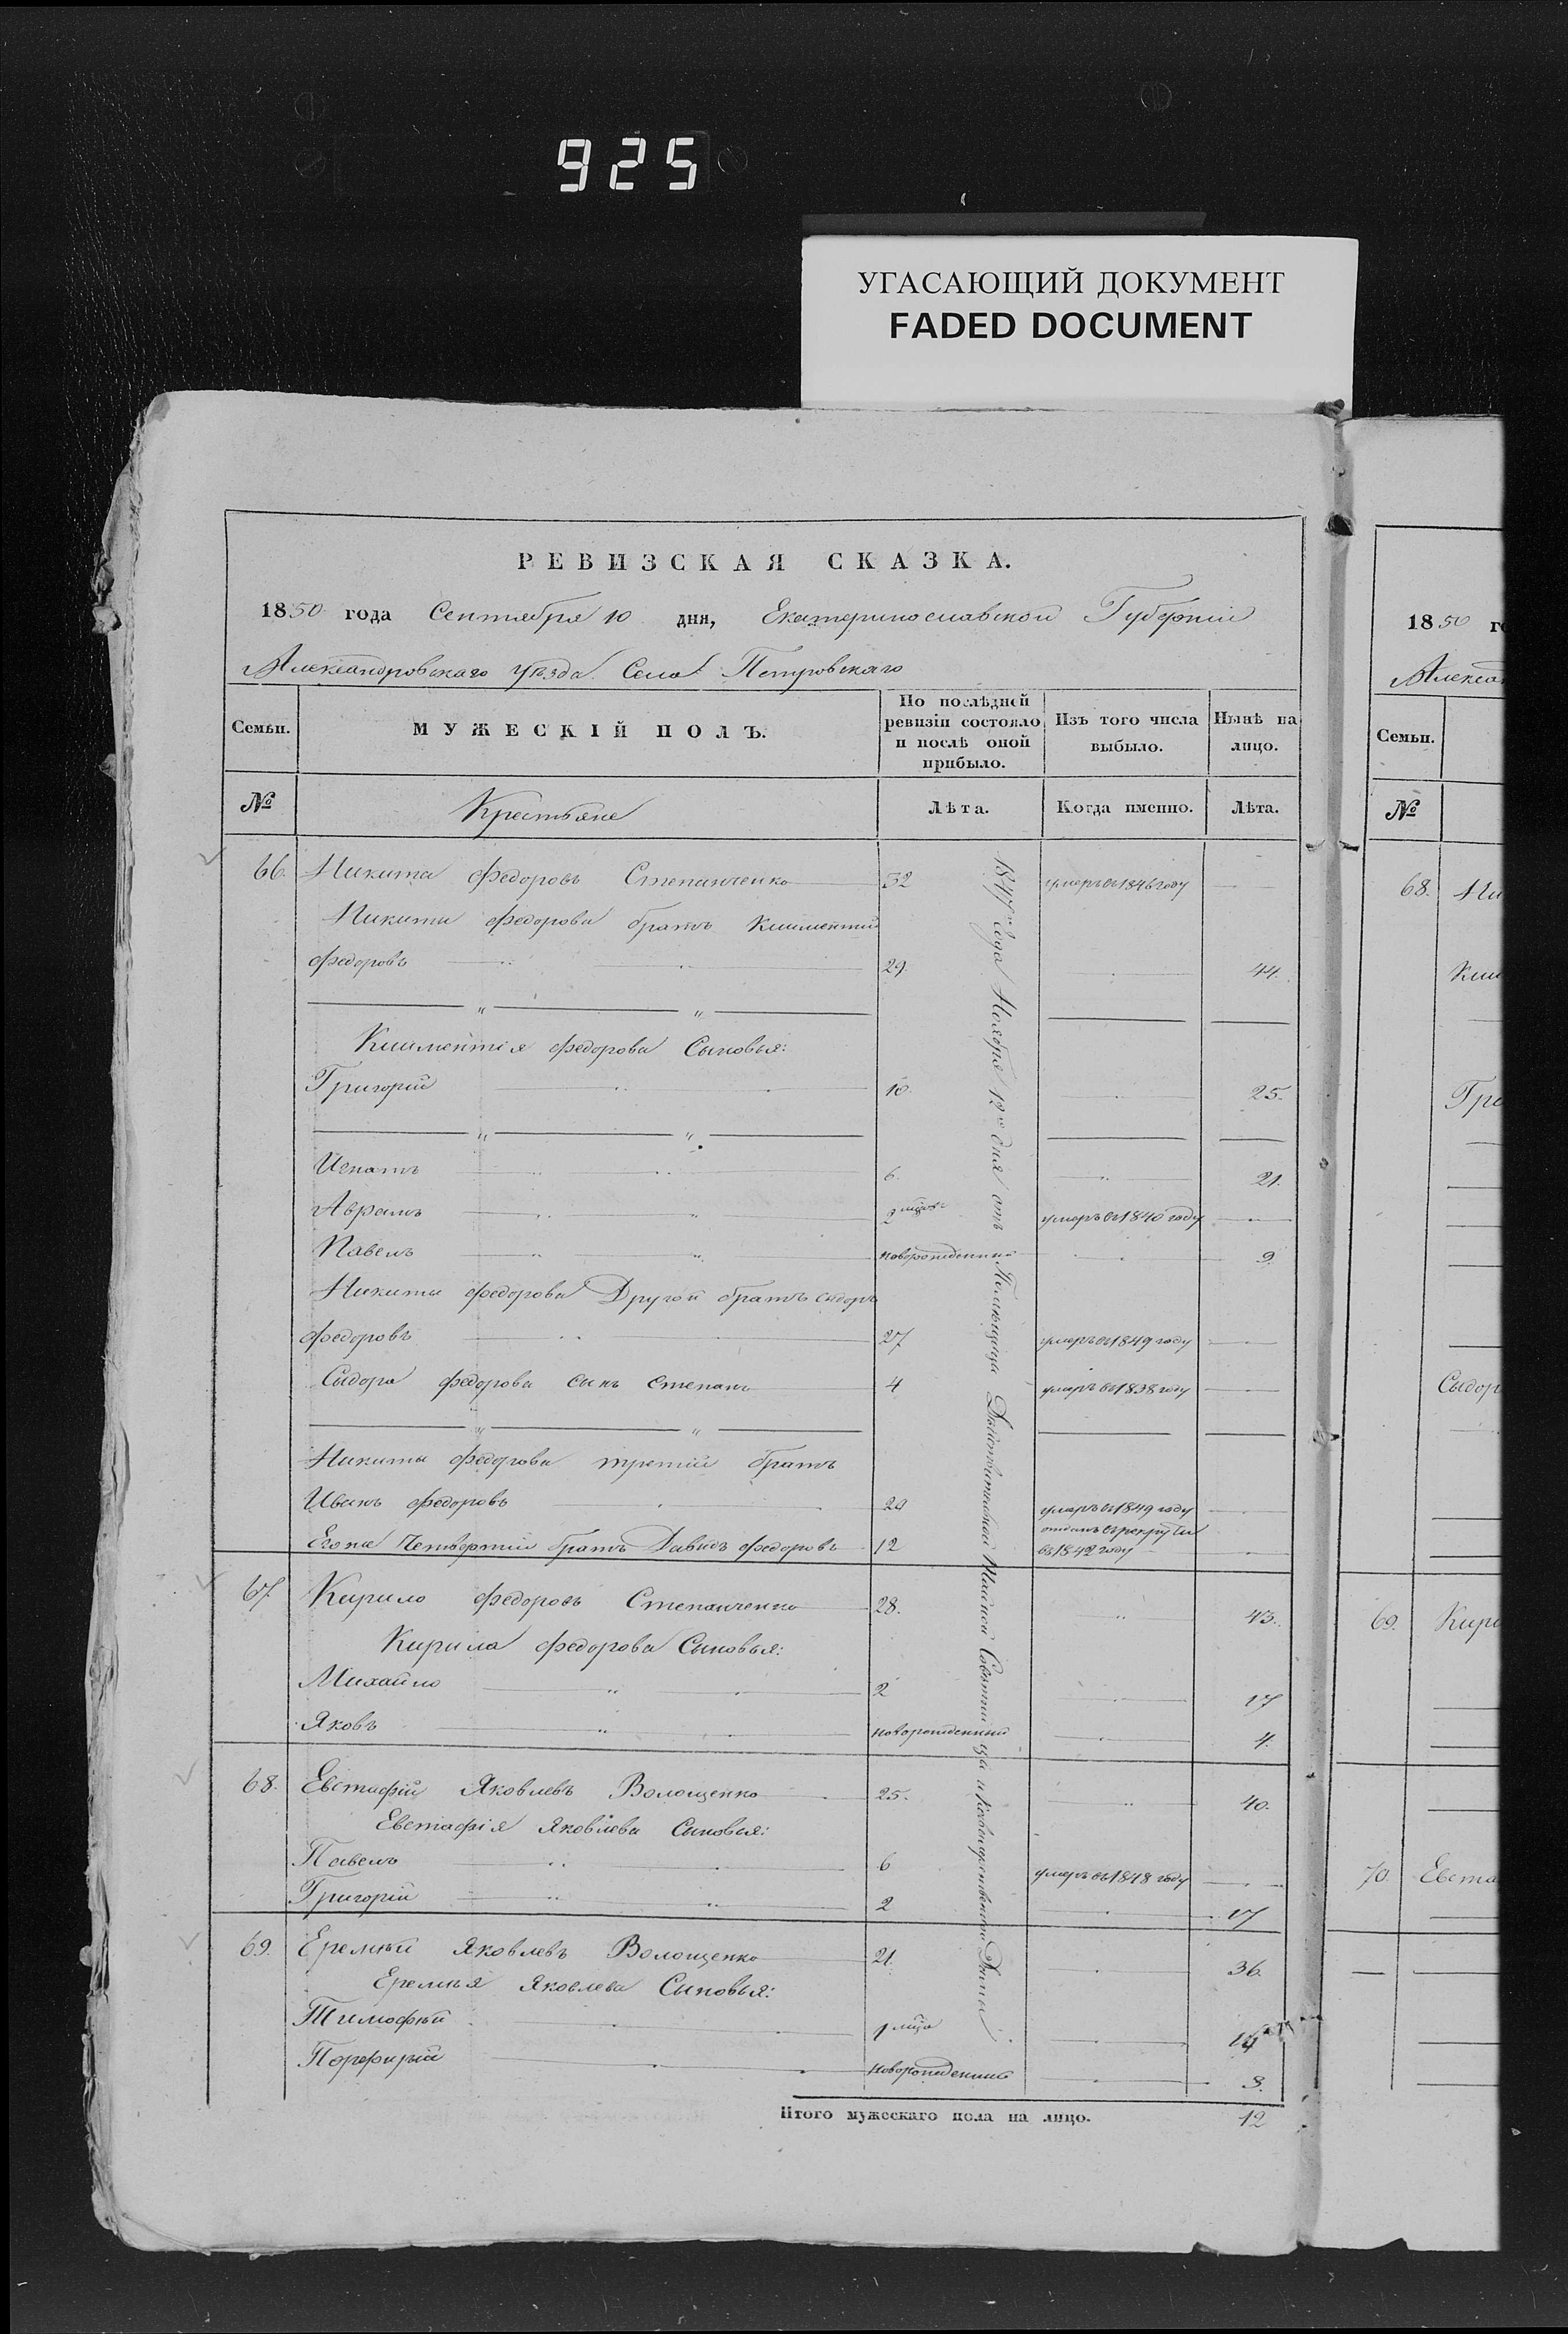 925
УГАСАЮЩИЙ ДОКУМЕНТ
FADED DOCUMENT
РЕВИЗСКАЯ СКАЗКА.
1850 года Сентября 10 дня, Екатеринославской Губернiи
Александровскаго уѣзда Села Петровскаго
Семьи. МУЖЕСКIЙ ПОЛЪ. По послѣдней ревизiи состояло и послѣ оной прибыло. Изъ того числа выбыло. Нынѣ на лицо.
№ Крестьяне Лѣта. Когда именно. Лѣта.
66. Никита Федоровъ Степанченко 32 умеръ въ 1846 году
Никиты Федорова братъ Климентiй
Федоровъ 29 44.
Климентiя Федорова Сыновья:
Григорiй 10. 25.
Игнатъ 6. 21.
Аврамъ 2 умеръ въ 1840 году
Павелъ новорожденный 9
Никиты Федорова Другой братъ Сидоръ
Федоровъ 27 умеръ въ 1849 году
Сидора Федорова сынъ Степанъ 4 умеръ въ 1838 году
Никиты Федорова третiй братъ
Иванъ Федоровъ 20 умеръ въ 1849 году
Его же Четвертый братъ Давидъ Федоровъ 12 отданъ въ рекруты
въ 1842 году
67 Кирило Федоровъ Степанченко 28. 43.
Кирила Федорова Сыновья:
Михайло 2 17
Яковъ новорожденный 4.
68. Евстафiй Яковлевъ Волощенко 25. 40.
Евстафiя Яковлева Сыновья:
Павелъ 6 умеръ въ 1848 году
Григорiй 2 17
69. Еремѣй Яковлевъ Волощенко 21 36.
Еремѣя Яковлева Сыновья:
Тимофѣй 1 16
Порфирiй новорожденный 8.
Итого мужескаго пола на лицо. 12
1847 года Ноября 12 дня отъ Помѣщицы Дѣйствительной Тайной Совѣтницы и Кавалерственной Дамы
1850 го
Алексан
Семьи.
№
68. Ни
Кли
Гри
Сидор
69. Кири
70. Евста